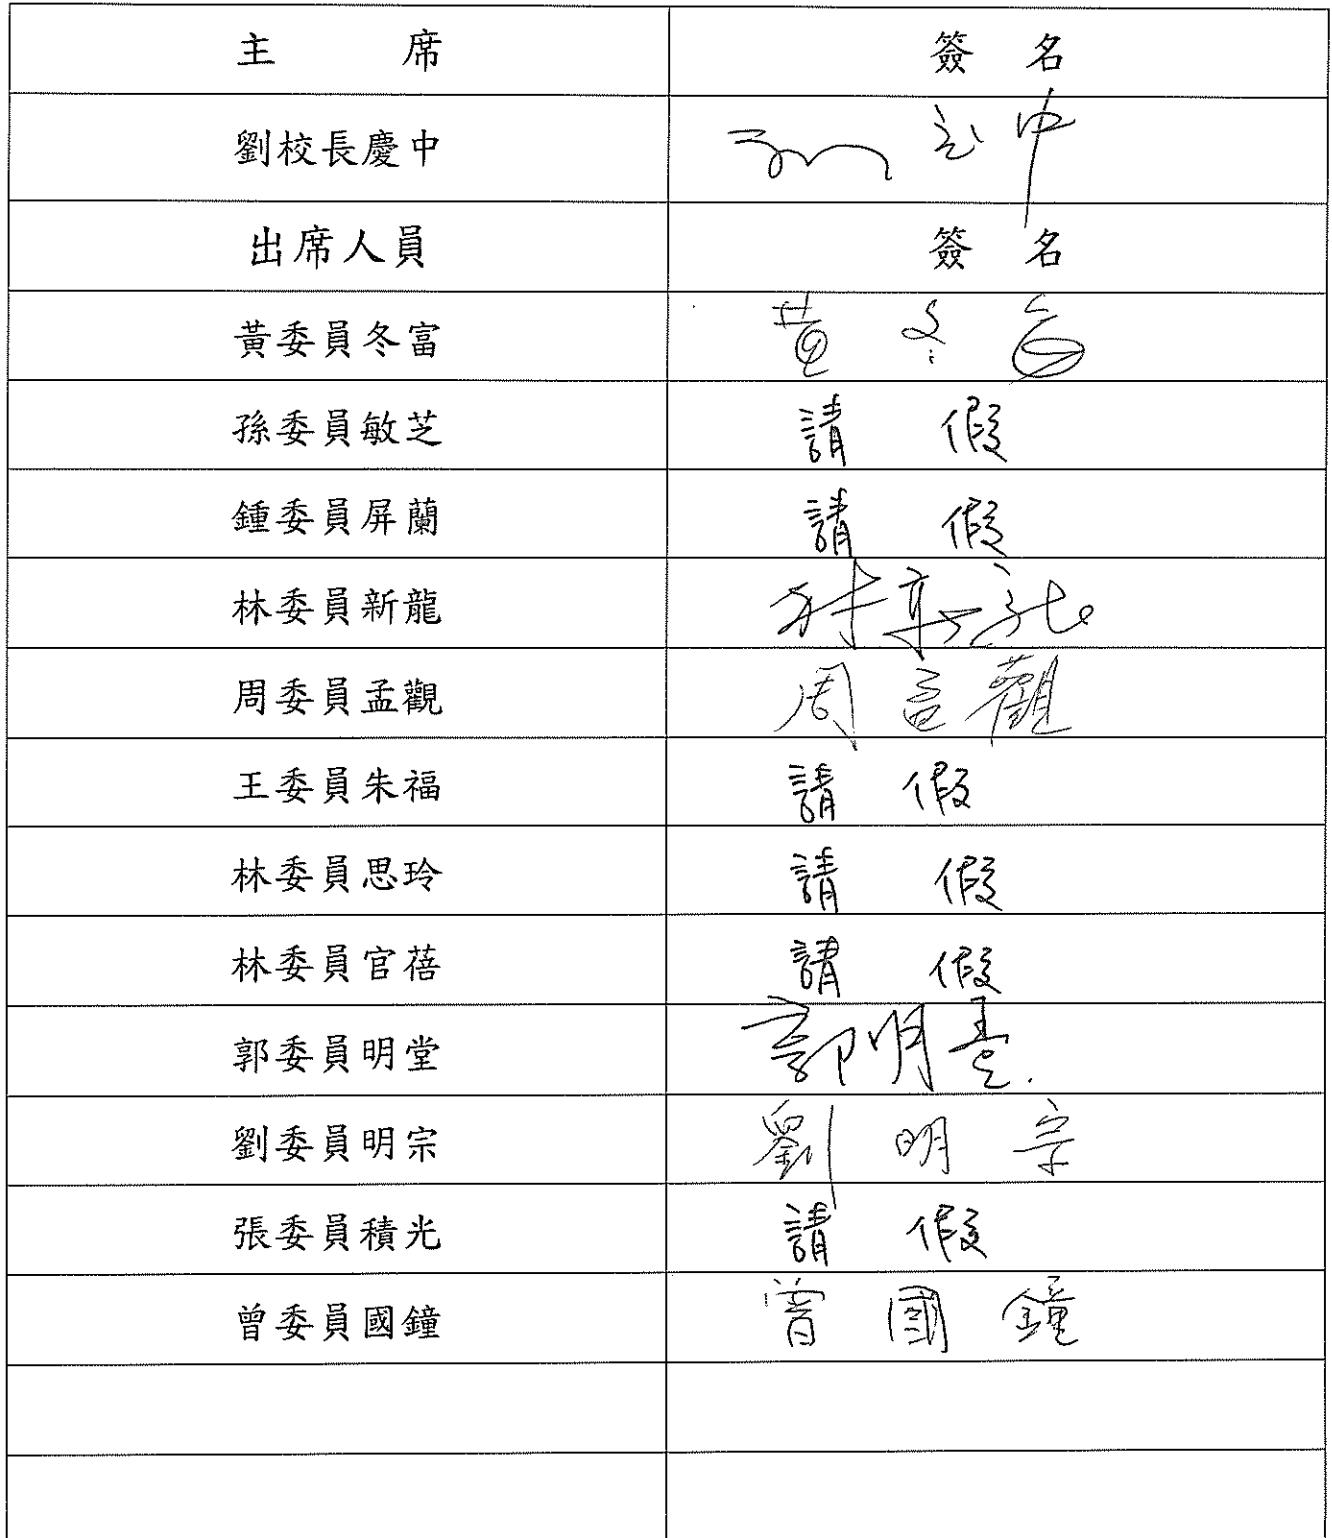 主 席 簽 名
劉校長慶中
出席人員 簽 名
黃委員冬富 黃冬富
孫委員敏芝 請 假
鍾委員屏蘭 請 假
林委員新龍 林新龍
周委員孟觀 周孟觀
王委員朱福 請 假
林委員思玲 請 假
林委員官蓓 請 假
郭委員明堂 郭明堂
劉委員明宗 劉明宗
張委員積光 請 假
曾委員國鐘 曾國鐘